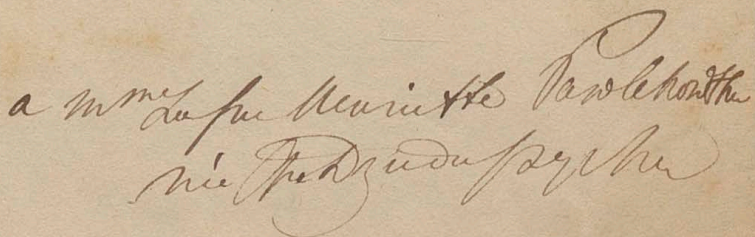 a Mme La Henriette Pawlikowska
née Dzieduszycka